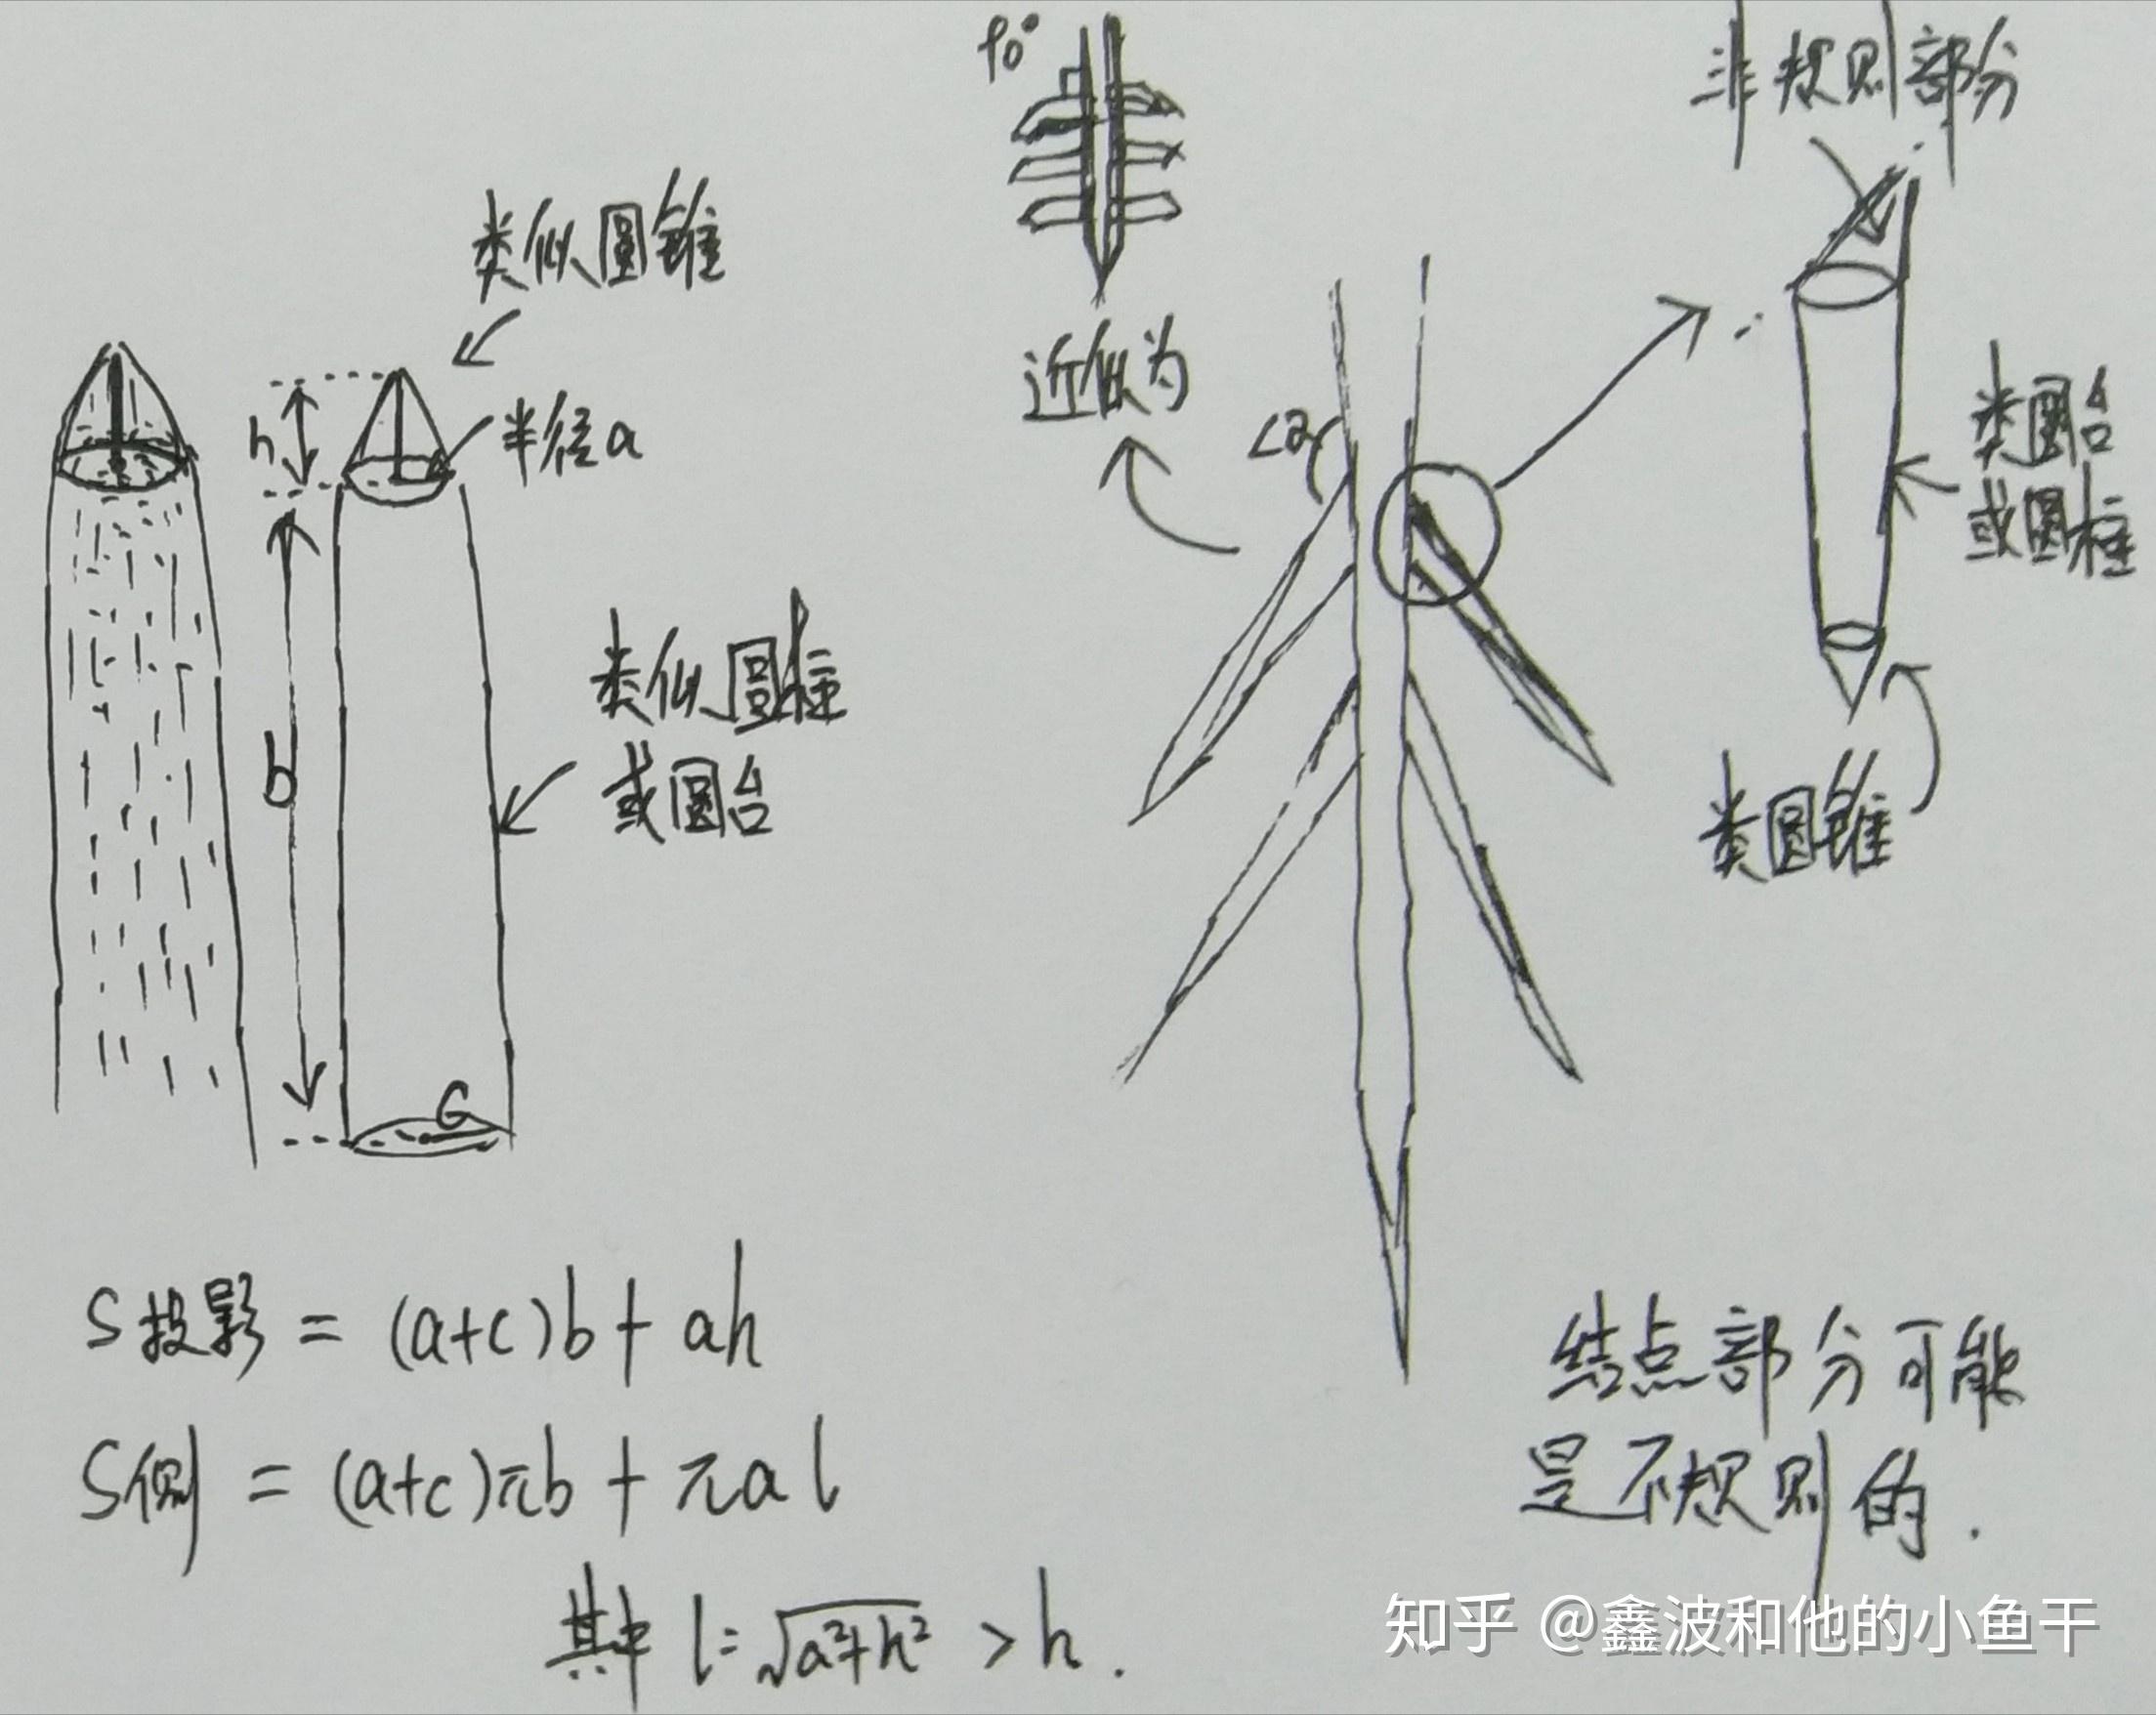 类似圆锥
h
半径a
b
类似圆柱
或圆台
c
90°
近似为
∠α
非规则部分
类圆台
或圆柱
类圆锥
S投影 = (a+c)b + ah
S侧 = (a+c)πb + πal
其中 l=√a²+h² > h.
结点部分可能
是不规则的.
知乎 @鑫波和他的小鱼干